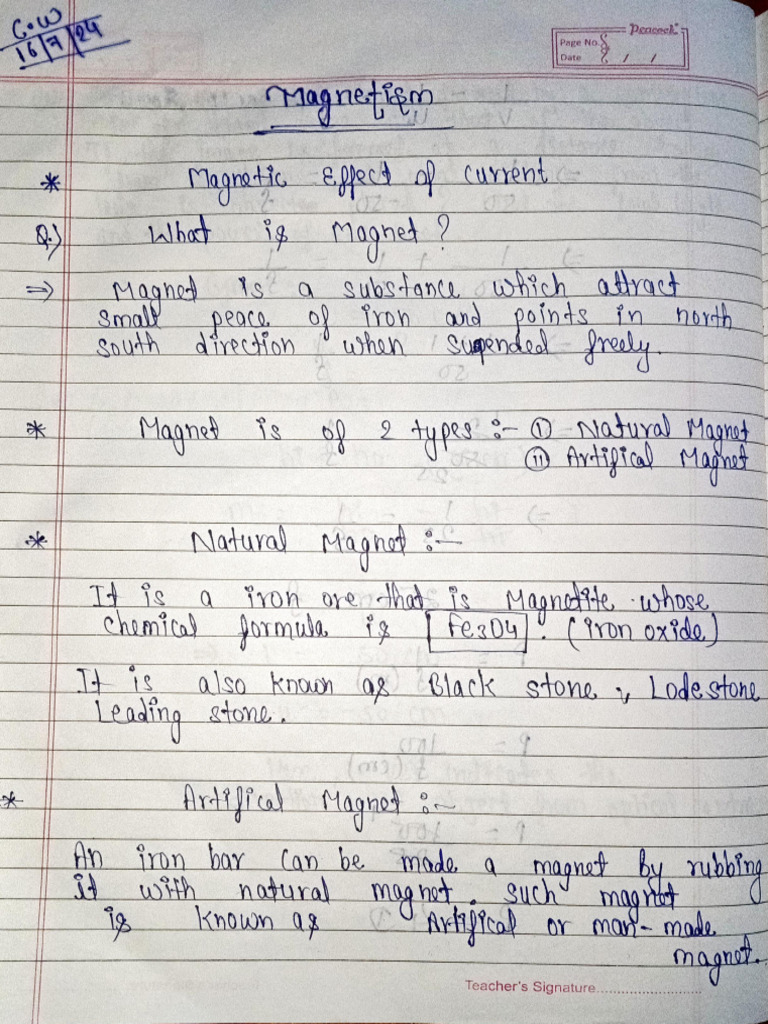 C.W
16/7/24
Peacock
Page No.
Date / /
Magnetism
* Magnetic Effect of current
Q.) What is Magnet?
⇒ Magnet is a substance which attract
small peace of iron and points in north
south direction when supended freely.
* Magnet is of 2 types :- (i) Natural Magnet
(ii) Artifical Magnet
* Natural Magnet :-
It is a iron ore that is Magnetite whose
chemical formula is Fe3O4. (iron oxide)
It is also known as Black stone, Lodestone
Leading stone.
* Artifical Magnet :-
An iron bar can be made a magnet by rubbing
it with natural magnet. such magnet
is known as Artifical or man-made
magnet.
Teacher's Signature....................